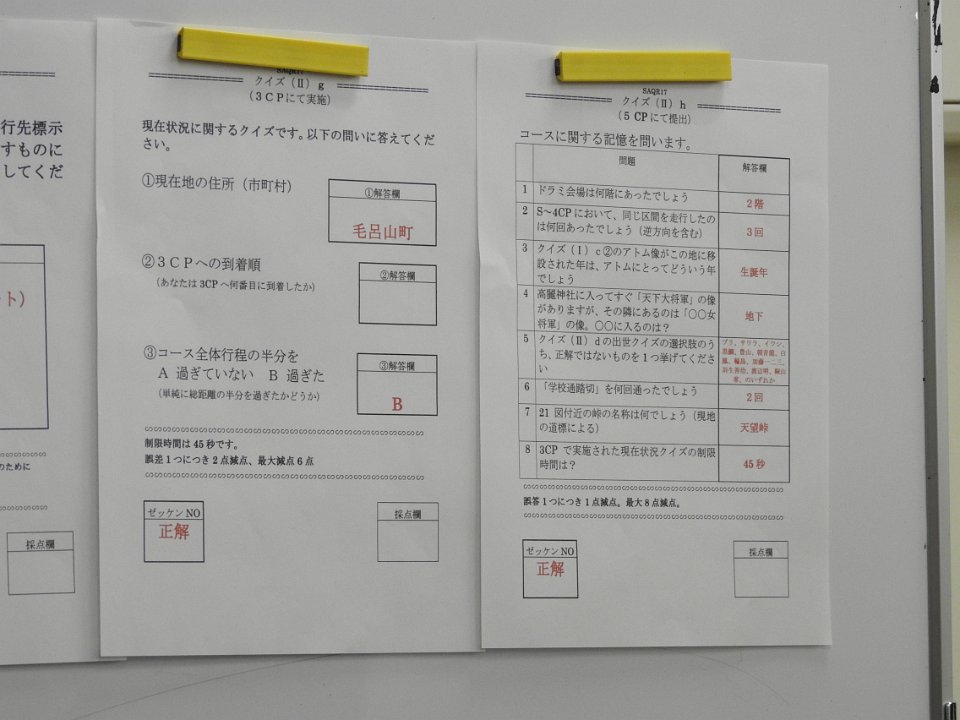 行先標示
すものに
してくだ
ート）
のために
採点欄
SAQR17
クイズ（Ⅱ）g
（3CPにて実施）
現在状況に関するクイズです。以下の問いに答えてくだ
さい。
①現在地の住所（市町村）
①解答欄
毛呂山町
②３ＣＰへの到着順
（あなたは 3CP へ何番目に到着したか）
②解答欄
③コース全体行程の半分を
Ａ 過ぎていない Ｂ 過ぎた
（単純に総距離の半分を過ぎたかどうか）
③解答欄
B
制限時間は 45 秒です。
誤差 1 つにつき 2 点減点、最大減点 6 点
ゼッケン NO
正解
採点欄
SAQR17
クイズ（Ⅱ）h
（5 CP にて提出）
コースに関する記憶を問います。
問題
解答欄
1 ドラミ会場は何階にあったでしょう
2 階
2 S～4CP において、同じ区間を走行したの
は何回あったでしょう（逆方向を含む）
3 回
3 クイズ（Ⅰ）c②のアトム像がこの地に移
設された年は、アトムにとってどういう年
でしょう
生誕年
4 高麗神社に入ってすぐ「天下大将軍」の像
がありますが、その隣にあるのは「〇〇女
将軍」の像。〇〇に入るのは？
地下
5 クイズ（Ⅱ）d の出世クイズの選択肢のう
ち、正解ではないものを 1 つ挙げてくださ
い
ブリ、サワラ、イワシ、
黒鯛、豊山、朝青龍、白
鵬、輪島、加藤一二三、
羽生善治、渡辺明、
章、のいずれか
6 「学校通踏切」を何回通ったでしょう
2 回
7 21 図付近の峠の名称は何でしょう（現地
の道標による）
天望峠
8 3CP で実施された現在状況クイズの制限
時間は？
45 秒
誤答 1 つにつき 1 点減点。最大 8 点減点。
ゼッケン NO
正解
採点欄